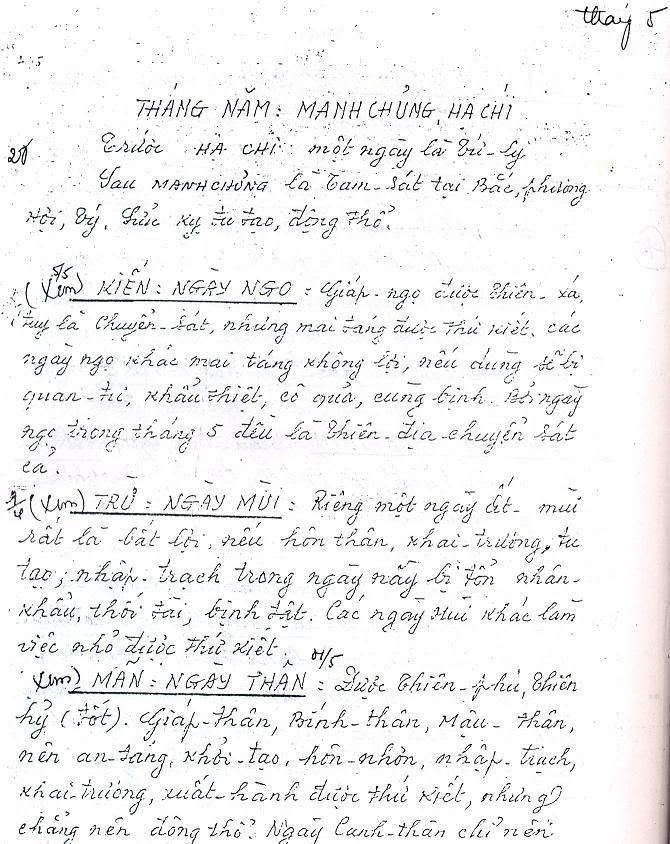 tháng 5
THÁNG NĂM: MANH CHỦNG, HẠ CHÍ
Trước HẠ CHÍ một ngày là Tứ-ly
Sau MANH CHỦNG là Tam-Sát tại Bắc, phương
Hợi, Tý, Sửu kỵ tu tạo, động thổ.
5/5
(Xem) KIẾN: NGÀY NGỌ: Giáp-ngọ được Thiên-xá,
tuy là Chuyển-Sát, nhưng mai táng được thứ kiết. các
ngày ngọ khác mai táng không lợi, nếu dùng sẽ bị
quan-tư, khẩu thiệt, cô quả, cùng binh. Bởi ngày
ngọ trong tháng 5 đều là Thiên-địa-chuyển Sát
cả.
(Xem) TRỪ: NGÀY MÙI: Riêng một ngày Ất-mùi
rất là bất lợi, nếu hôn thân, khai-trương, tu
tạo, nhập-trạch trong ngày nầy bị tổn nhân-
khẩu, thối tài, bịnh tật. Các ngày Mùi khác làm
việc nhỏ được thứ kiết.
01/5
Xem) MÃN: NGÀY THÂN: Được Thiên-phú, Thiên
hỷ (Tốt). Giáp-thân, Bính-thân, Mậu-thân,
nên an-táng, khởi-tạo, hôn-nhơn, nhập-trạch,
khai-trương, xuất-hành được thứ kiết, nhưng
chẳng nên động thổ. Ngày Canh-thân chỉ nên